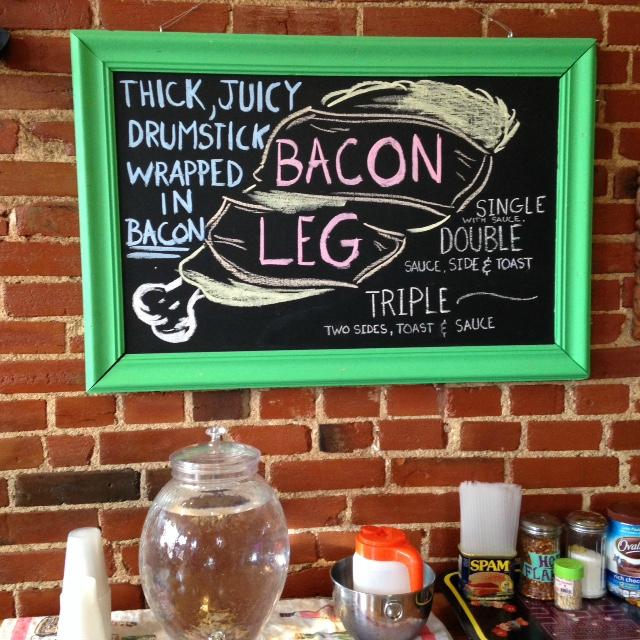 THICK, JUICY
DRUMSTICK
WRAPPED
IN
BACON
BACON
LEG
SINGLE
WITH SAUCE
DOUBLE
SAUCE, SIDE & TOAST
TRIPLE
TWO SIDES, TOAST & SAUCE
SPAM
HOT
FLAKES
Oval
rich choc